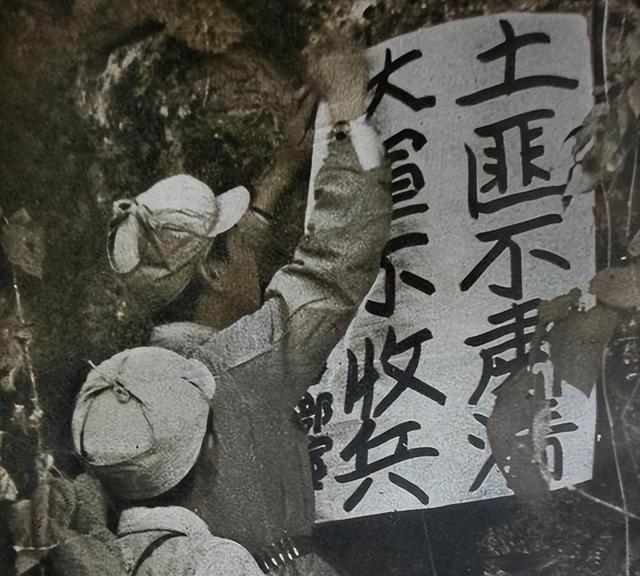 土匪不肃清
大軍不收兵
部